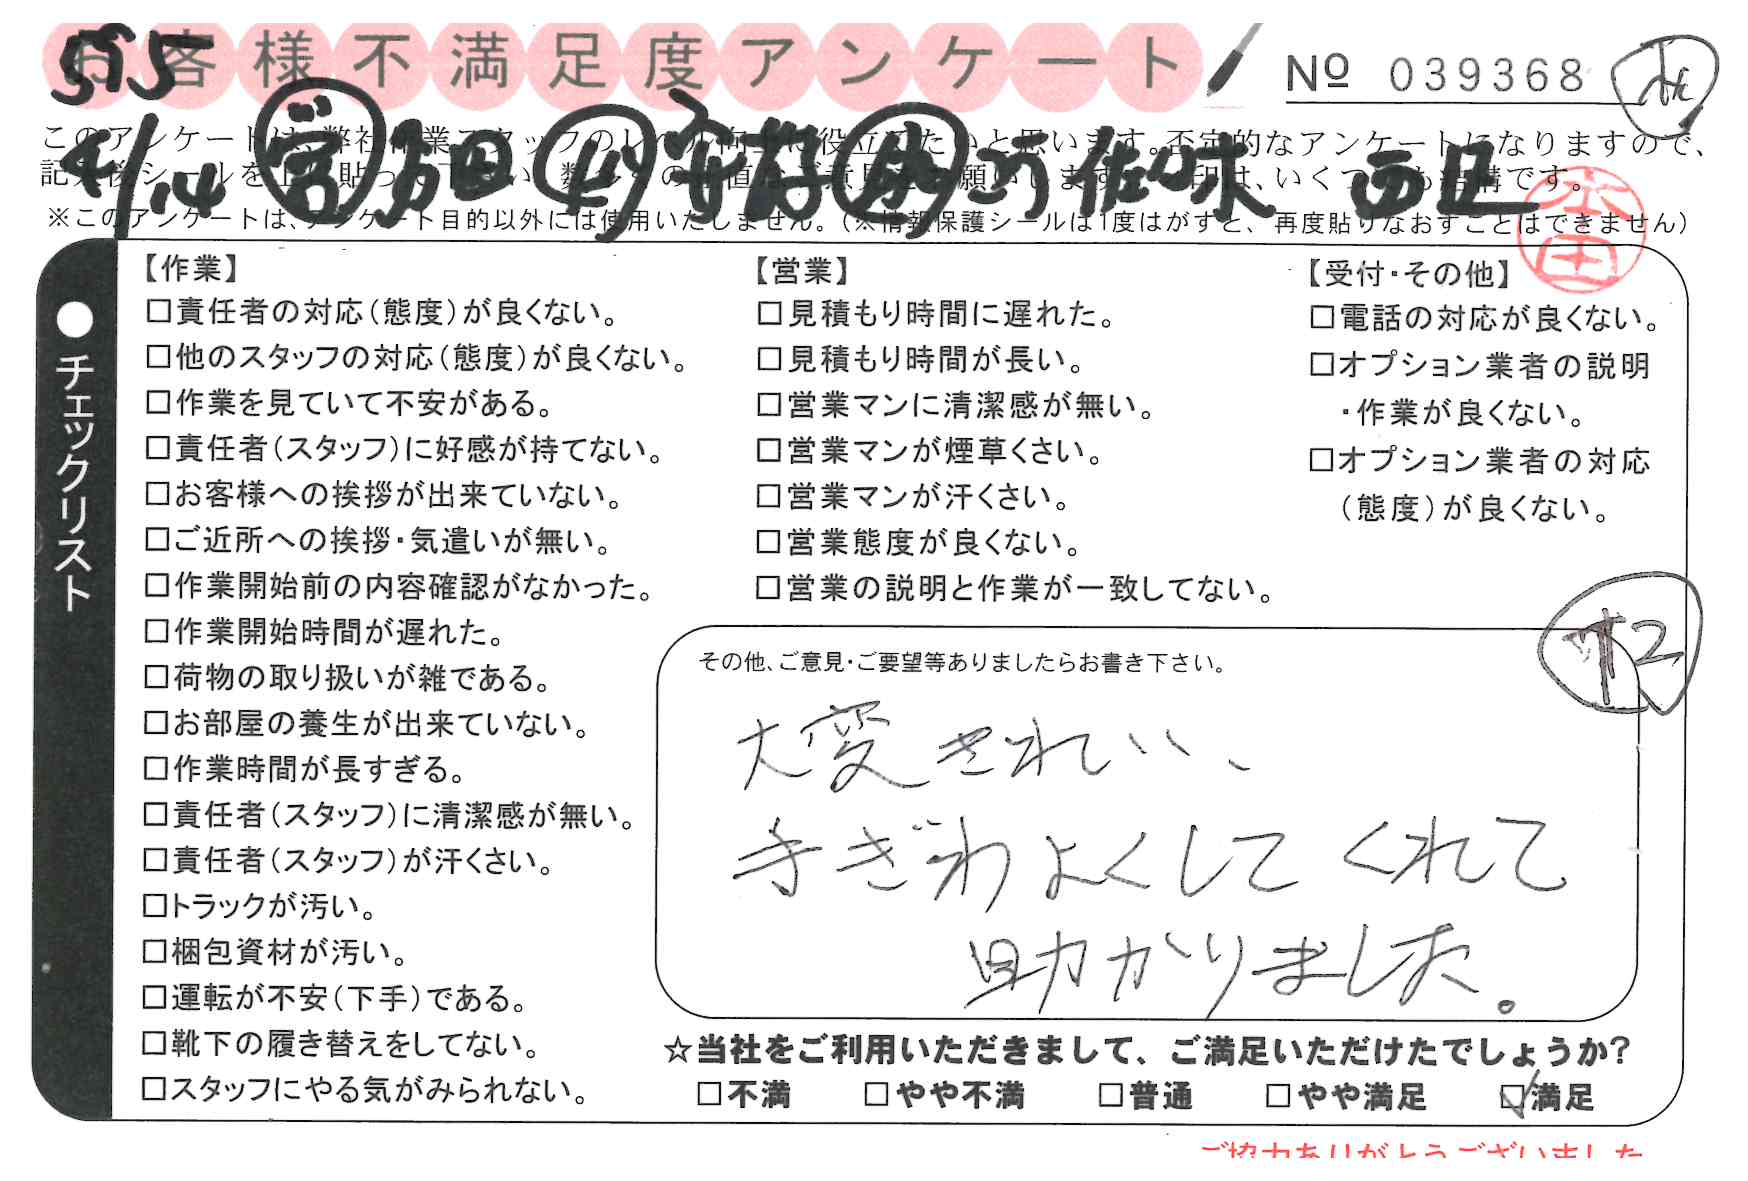 お客様不満足度アンケート
515
No 039368
このアンケートは、弊社作業スタッフのレベル向上に役立てたいと思います。否定的なアンケートになりますので、
4/14
佐々木
※このアンケートは、アンケート目的以外には使用いたしません。(※情報保護シールは1度はがすと、再度貼りなおすことはできません)
●チェックリスト
【作業】
□責任者の対応(態度)が良くない。
□他のスタッフの対応(態度)が良くない。
□作業を見ていて不安がある。
□責任者(スタッフ)に好感が持てない。
□お客様への挨拶が出来ていない。
□ご近所への挨拶・気遣いが無い。
□作業開始前の内容確認がなかった。
□作業開始時間が遅れた。
□荷物の取り扱いが雑である。
□お部屋の養生が出来ていない。
□作業時間が長すぎる。
□責任者(スタッフ)に清潔感が無い。
□責任者(スタッフ)が汗くさい。
□トラックが汚い。
□梱包資材が汚い。
□運転が不安(下手)である。
□靴下の履き替えをしてない。
□スタッフにやる気がみられない。
【営業】
□見積もり時間に遅れた。
□見積もり時間が長い。
□営業マンに清潔感が無い。
□営業マンが煙草くさい。
□営業マンが汗くさい。
□営業態度が良くない。
□営業の説明と作業が一致してない。
【受付・その他】
□電話の対応が良くない。
□オプション業者の説明
・作業が良くない。
□オプション業者の対応
(態度)が良くない。
その他、ご意見・ご要望等ありましたらお書き下さい。
大変きれい、
手ぎわよくしてくれて
助かりました。
☆当社をご利用いただきまして、ご満足いただけたでしょうか?
□不満 □やや不満 □普通 □やや満足 ☑満足
ご協力ありがとうございました